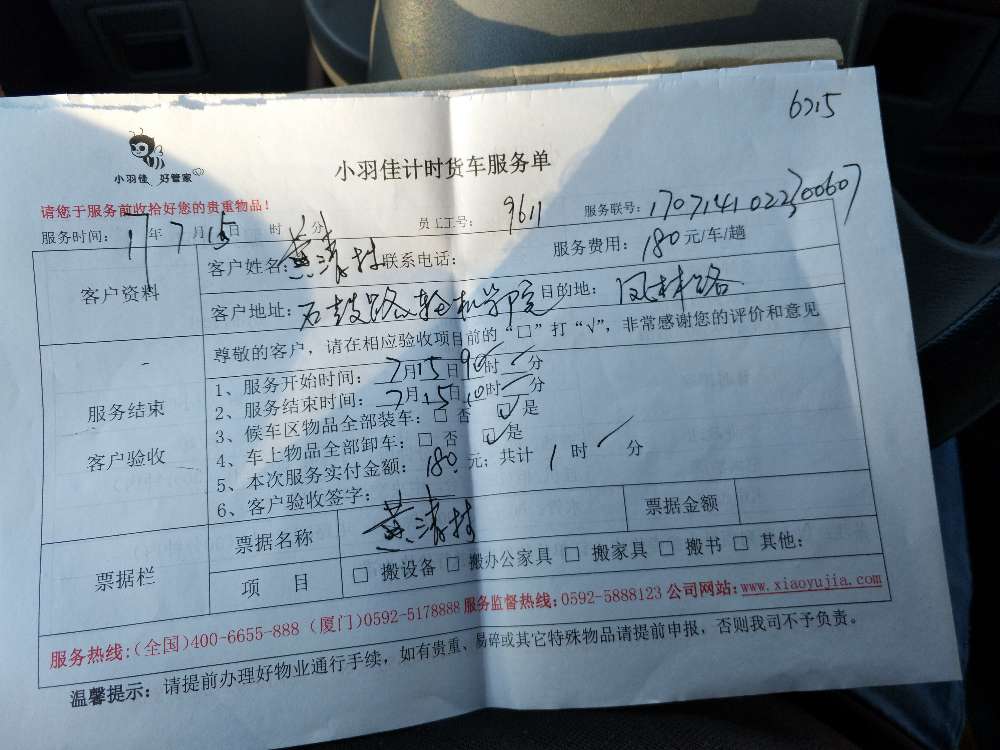 6215
小羽佳 好管家
小羽佳计时货车服务单
请您于服务前收拾好您的贵重物品!
服务时间: 17年7月15日 时 分 员工工号: 9611 服务联号: 1707141022300607
客户资料
客户姓名: 黄清林 联系电话: 服务费用: 180元/车/趟
客户地址: 石鼓路轮机学院 目的地: 凤林路
服务结束
客户验收
尊敬的客户,请在相应验收项目前的“□”打“√”,非常感谢您的评价和意见
1、服务开始时间: 7月15日9时 分
2、服务结束时间: 7月15日10时 分
3、候车区物品全部装车: □ 否 ☑ 是
4、车上物品全部卸车: □ 否 ☑ 是
5、本次服务实付金额: 180元; 共计 1 时 分
6、客户验收签字: 黄清林
票据栏
票据名称 票据金额
项 目 □ 搬设备 □ 搬办公家具 □ 搬家具 □ 搬书 □ 其他:
服务热线:(全国)400-6655-888 (厦门)0592-5178888 服务监督热线:0592-5888123 公司网站:www.xiaoyujia.com
温馨提示: 请提前办理好物业通行手续,如有贵重、易碎或其它特殊物品请提前申报,否则我司不予负责。